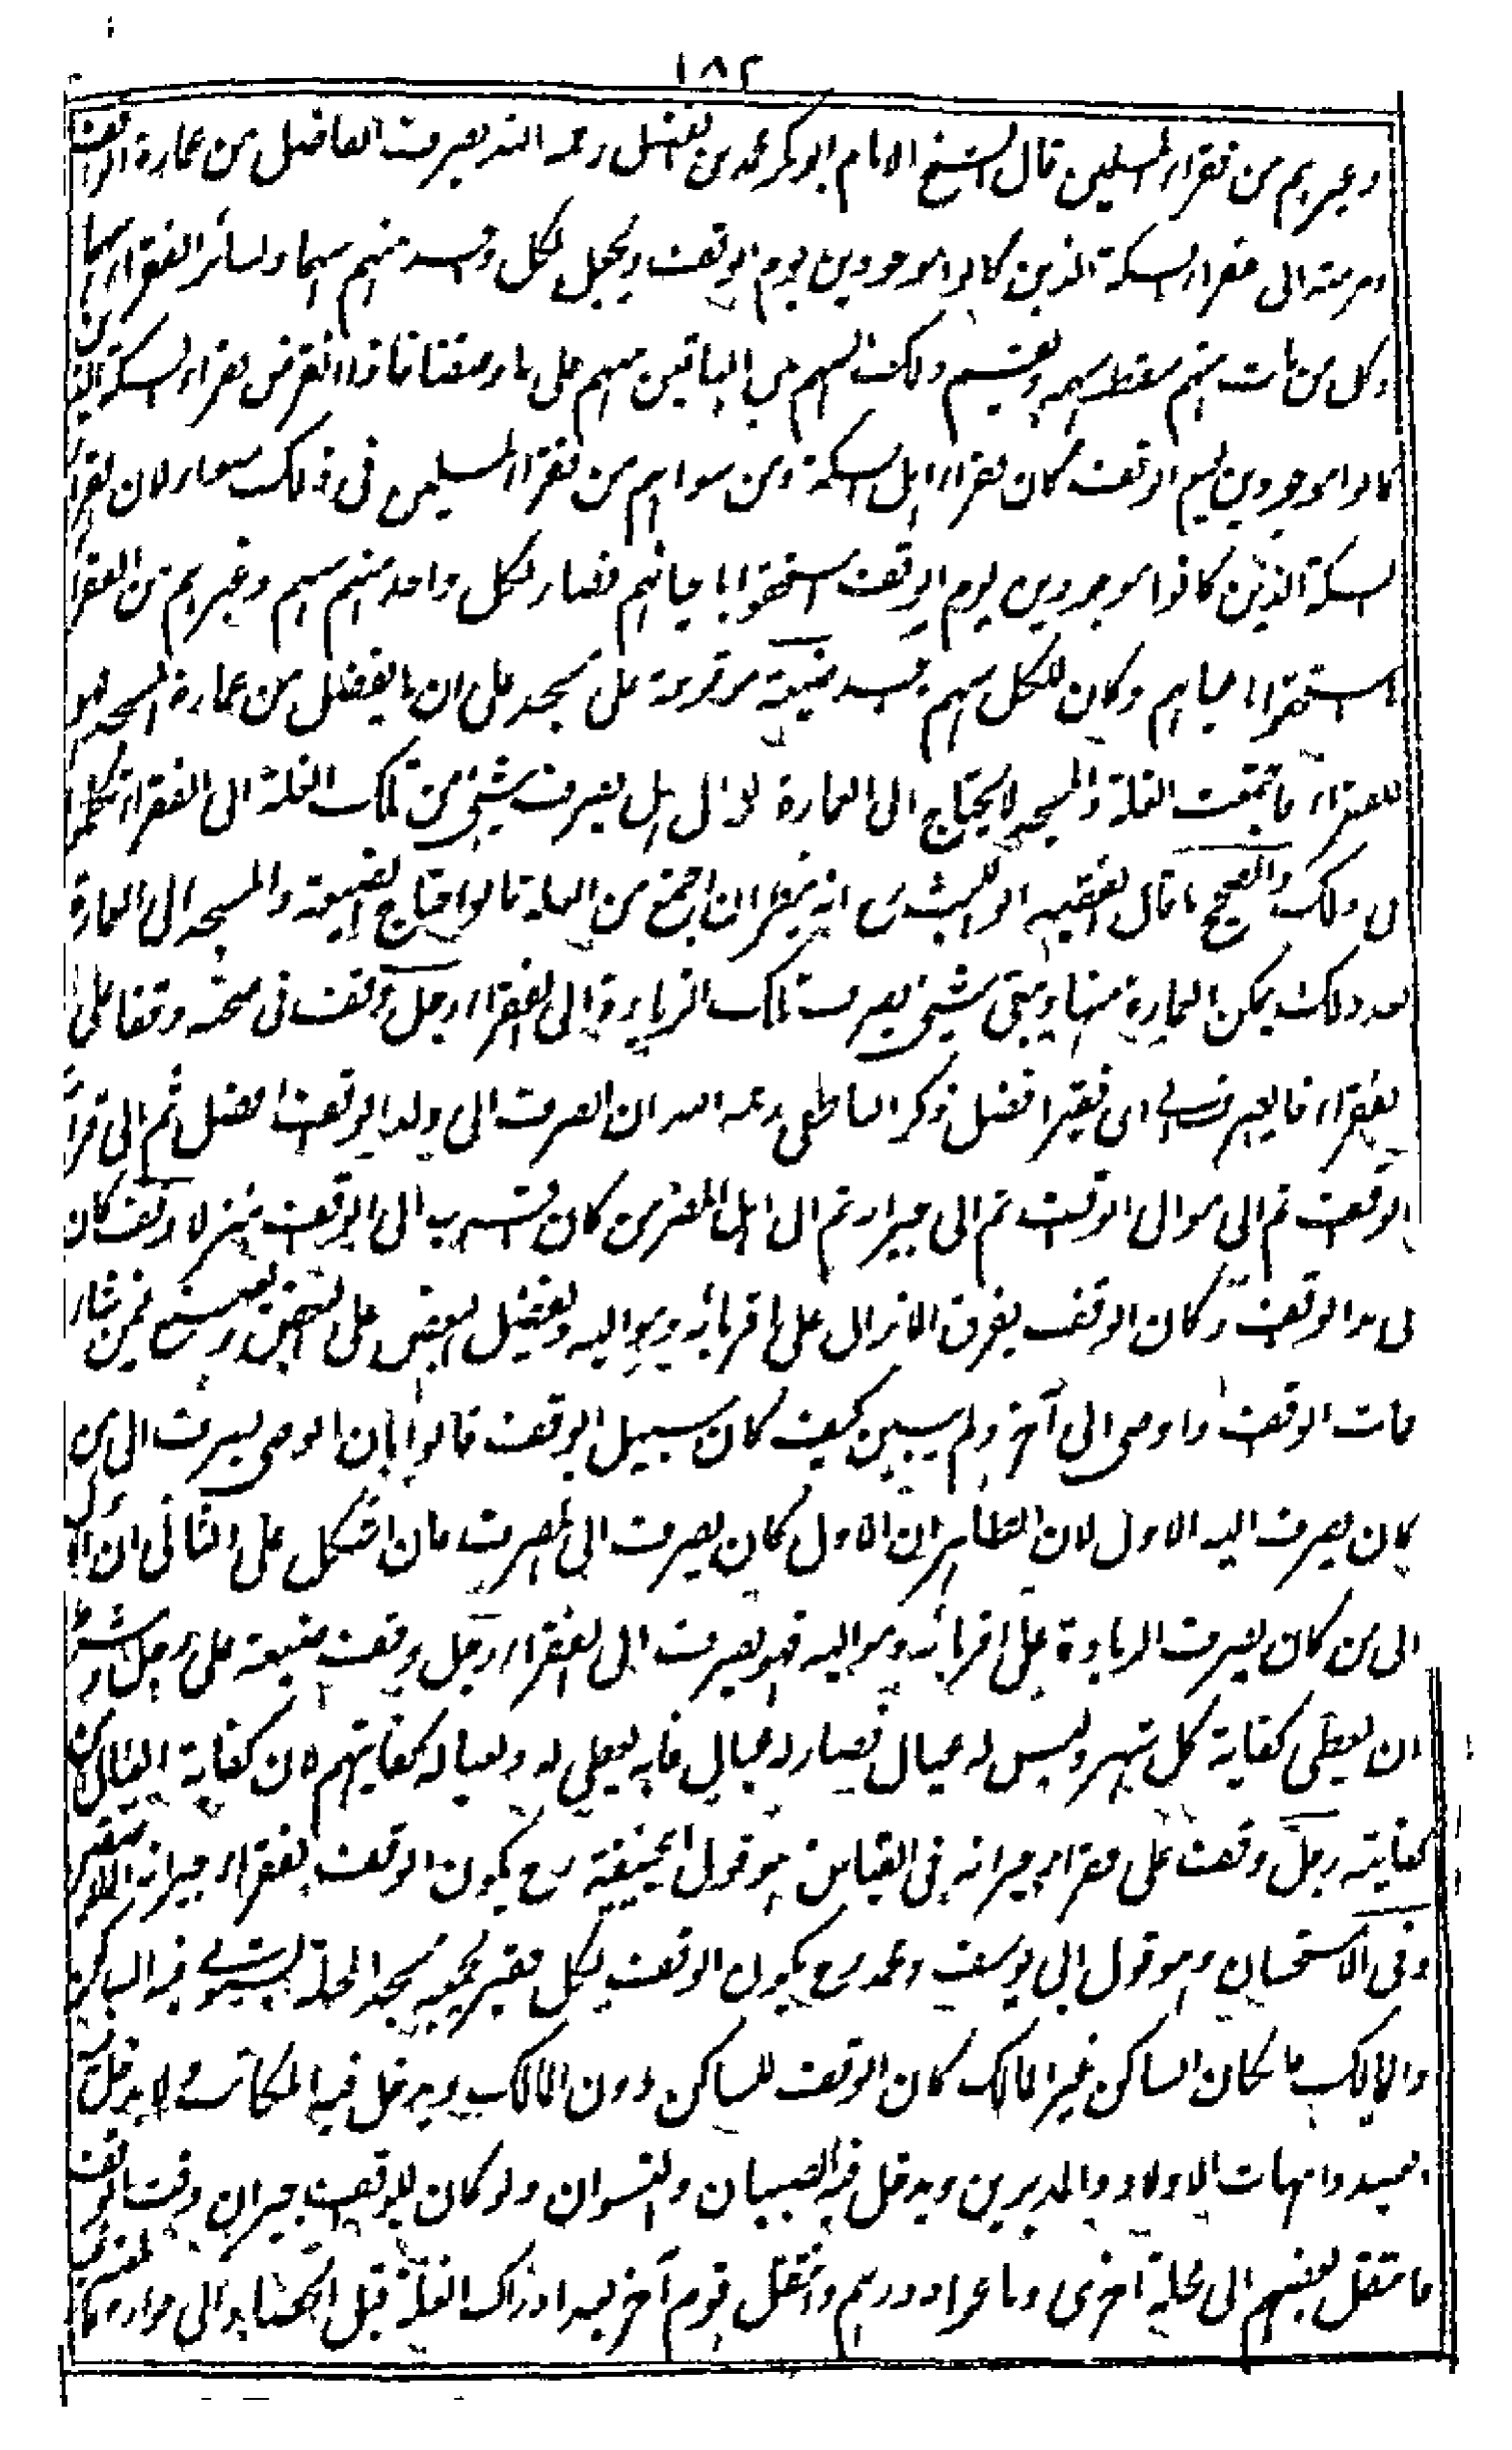 ١٨٢
وغيرهم من فقراء المسلمين قال الشيخ الامام ابو بكر محمد بن الفضل رحمه الله يصرف الفاضل من عمارة الوقف
ومرمته الى فقراء السكة الذين كانوا موجودين يوم الوقف ويجعل لكل واحد منهم سهما ولسائر الفقراء سهما
وكل من مات منهم سقط سهمه ويقسم ذلك السهم بين الباقين منهم على ما وصفنا فاذا انقرض فقراء السكة الذين
كانوا موجودين يوم الوقف كان فقراء اهل السكة ومن سواهم من فقراء المسلمين فى ذلك سواء لان فقراء
السكة الذين كانوا موجودين يوم الوقف استحقوا باعيانهم فصار لكل واحد منهم سهم وغيرهم من الفقراء
ما استحقوا باعيانهم وكان للكل سهم واحد ضيعة موقوفة على مسجد على ان ما يفضل من عمارة المسجد فهو
للفقراء فاجتمعت الغلة والمسجد لا يحتاج الى العمارة للحال هل يصرف شيئ من تلك الغلة الى الفقراء تكلموا
فى ذلك والصحيح ما قال الفقيه ابو الليث انه ينظر ان اجتمع من الغلة ما لو احتاج الضيعة والمسجد الى العمارة
بعد ذلك يمكن العمارة منها ويبقى شيئ يصرف تلك الزيادة الى الفقراء رجل وقف فى صحته وقفا على
الفقراء فالصرف الى اى فقير افضل ذكر الناطفى رحمه الله ان الصرف الى ولد الوقف افضل ثم الى قرابة
الوقف ثم الى موالى الوقف ثم الى جيرانه ثم الى اهل المصر من كان اقرب الى الوقف منزلا وقف كان
فى يد الوقف وكان الوقف يفرق الانزال على اقربائه ومواليه ويفضل البعض على البعض ويضع فيمن شاء
مات الوقف واوصى الى آخر ولم يبين كيف كان سبيل الوقف قالوا بان الوصى يصرف الى من
كان يصرف اليه الاول لان الظاهر ان الاول كان يصرف الى المصرف فان اشكل على الثانى ان الاول
الى من كان يصرف الزيادة على اقربائه ومواليه فهو يصرف الى الفقراء رجل وقف ضيعة على رجل وشرط
ان يعطى كفاية كل شهر وليس له عيال فصار له عيال فانه يعطى له ولعياله كفايتهم لان كفاية العيال من
كفايته رجل وقف على فقراء جيرانه فى القياس هو قول ابيحنيفة رح يكون الوقف لفقراء جيرانه الملاصقين
وفى الاستحسان وهو قول ابى يوسف ومحمد رح يكون الوقف لكل فقير يجمعه مسجد المحلة يستوى فيه الساكن
والمالك فان كان الساكن غير المالك كان الوقف للساكن دون المالك ويدخل فيه المكاتب ولا يدخل فيه
العبيد وامهات الاولاد والمدبرين ويدخل فيه الصبيان والنسوان ولو كان للوقف جيران وقت الوقف
فانتقل بعضهم الى محلة اخرى وباعوا دورهم وانتقل قوم آخر بعد ادراك الغلة قبل الحصاد الى جواره